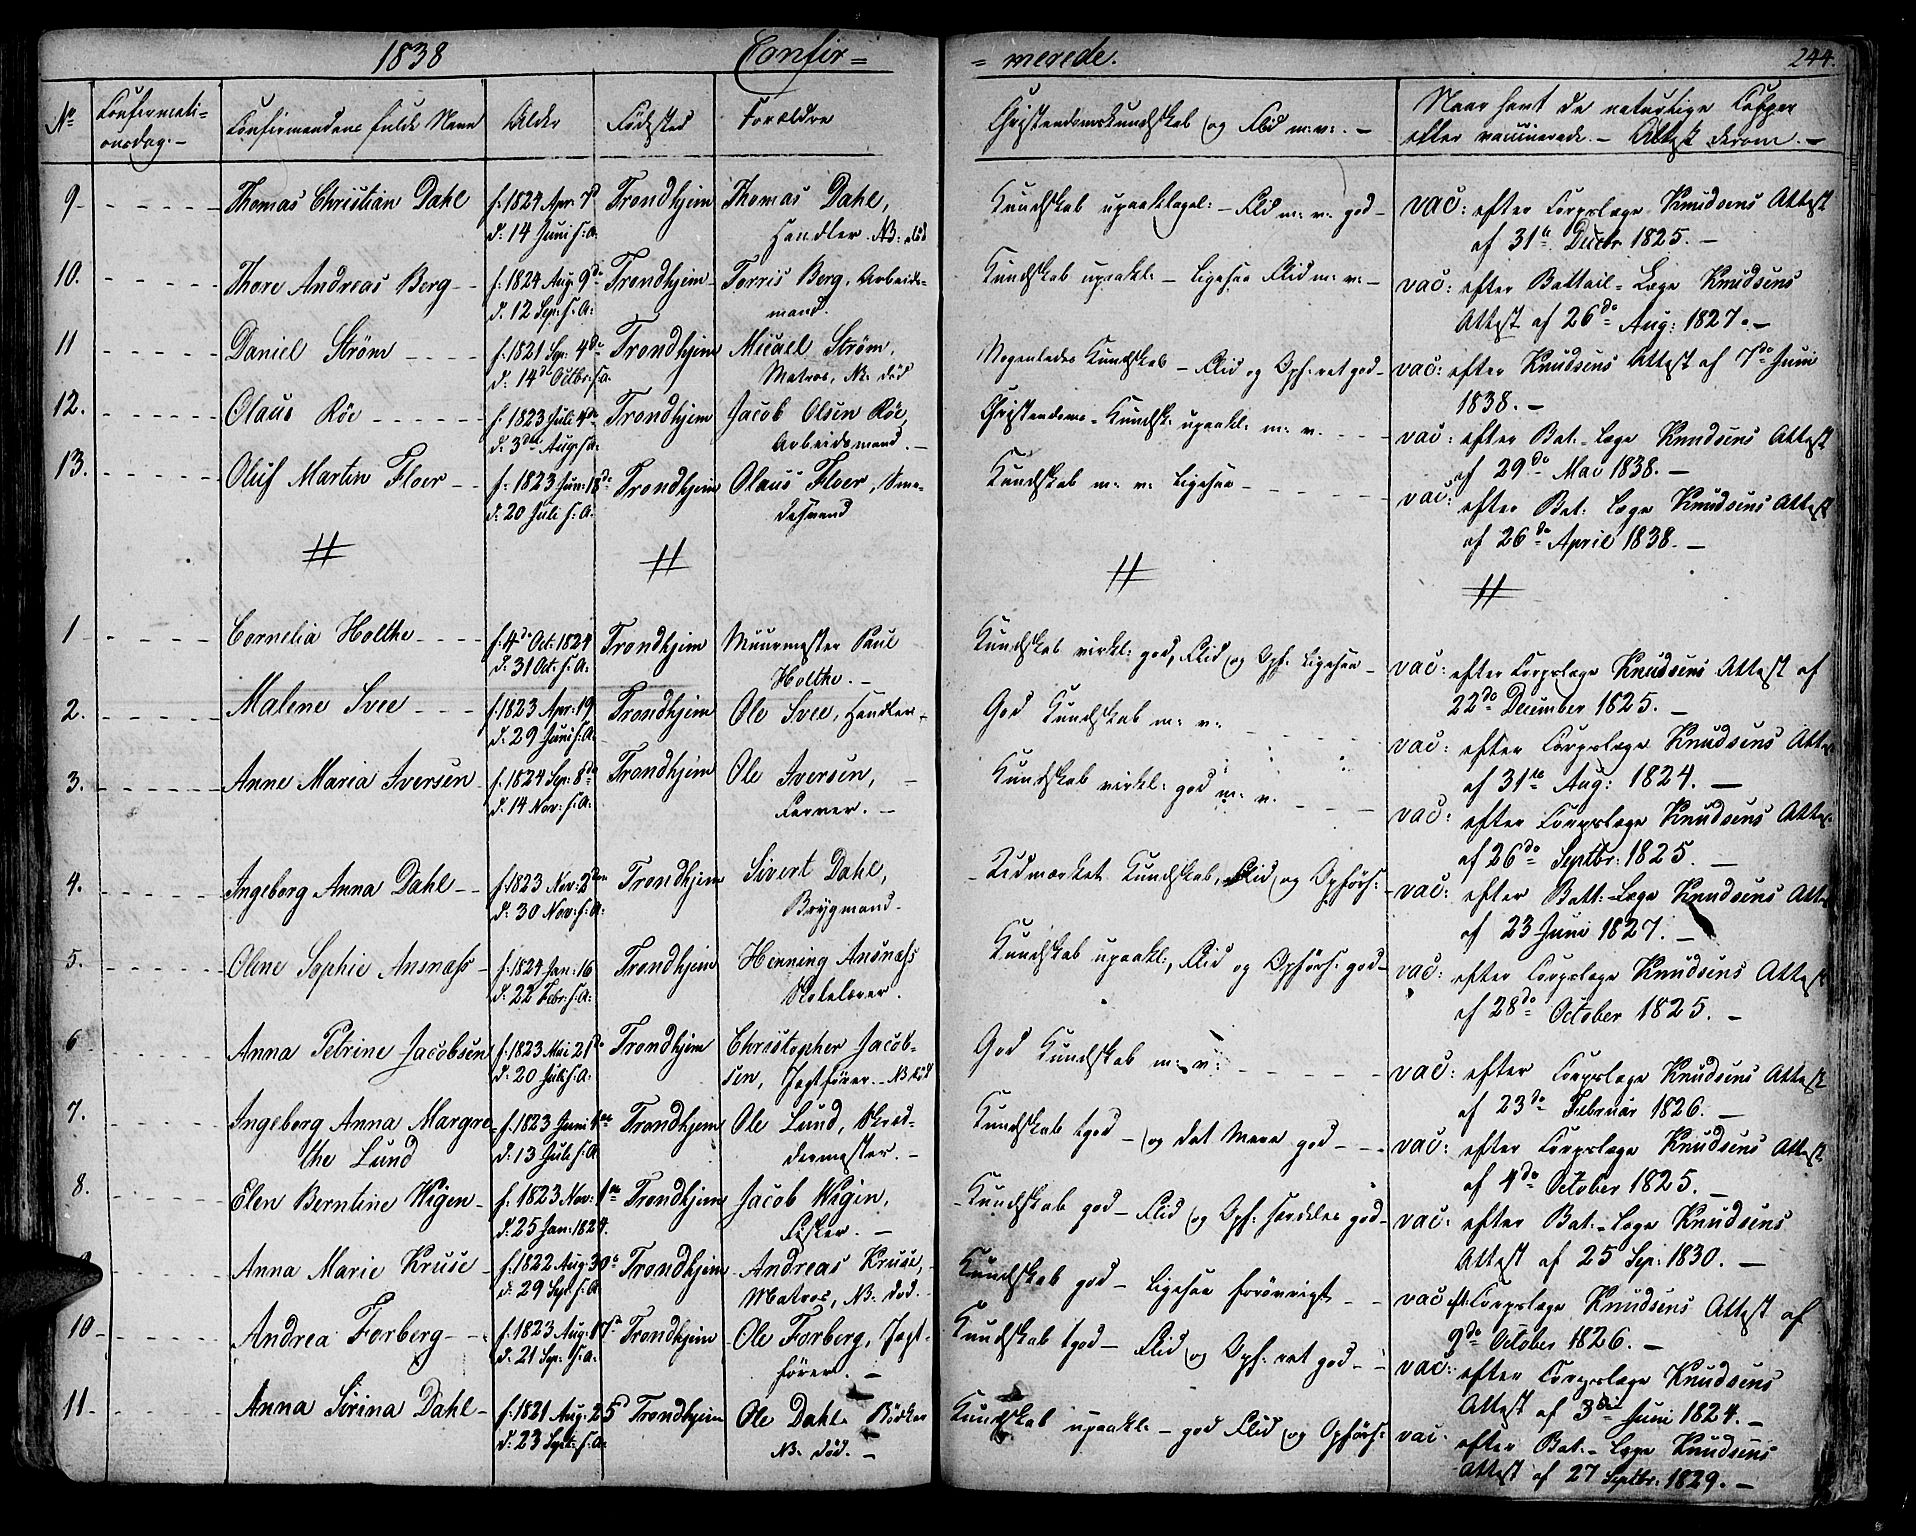 1838 Confir=
= merede. 244.
No Confirmati= onsdag.- Confirmandens fulde Navn Alder Fødested Forældre Christendomskundskab og Flid m: v: - Naar havt de naturlige Copper
eller vaccinerede. - Attest derom. -
9 Thomas Christian Dahl f: 1824 Apr: 7d Trondhjem Thomas Dahl, Kundskab upaaklagel: - Flid m: v: god - vac: efter Corpslæge Knudsens Attest
d: 14 Juni s: A: Handler. NB: død af 31te Decbr. 1825. -
10. Thore Andreas Berg - f: 1824 Aug 9de Trondhjem Torris Berg, Arbeids= Kundskab upaakl: - Ligesaa Flid m: v: - vac: efter Battail=Læge Knudsens
d: 12 Sep: s: A: mand. Attest af 26de Aug: 1827. -
11 Daniel Strøm f: 1821 Sep: 4de Trondhjem Micael Strøm, Nogenledes Kundskab - Flid og Opf: ret god - vac: efter Knudsens Attest af 7de Juni
d: 14de Octbr: s: a: Matros, NB: død 1838. -
12. Olaus Röe f: 1823 Juli 4de Trondhjem Jacob Olsen Röe, Christendoms=Kundsk: upaakl: m: v. vac: efter Bat:-Læge Knudsens Attest
d: 3die Aug: s: a: Arbeidsmand. - af 29de Mai 1838. -
13. Oluf Martin Floer f: 1823 Jun: 18de Trondhjem Olaus Floer, Sme= Kundskab m: v: Ligesaa vac: efter Bat: Læge Knudsens Attest
d: 20 Juli s: A: desvend af 26de April 1838. -
1 Cornelia Holthe f: 4de Oct: 1824 Trondhjem Muurmester Paul Kundskab virkl: god, Flid og Opf: Ligesaa - vac: efter Corpslæge Knudsens Attest af
d: 31 Oct: s: A: Holthe. - 22de December 1825. -
2. Malene Svee f: 1823 Apr: 19 Trondhjem Ole Svee, Handler God Kundskab m: v: vac: efter Corpslæge Knudsens Atte
d: 29 Juni s: A: af 31te Aug: 1824. -
3. Anne Maria Iversen f: 1824 Sep: 8de Trondhjem Ole Iversen, Kundskab virkl: god m: v. vac: efter Corpslæge Knudsens Attes
d: 14 Nov: s: A: Farver. - af 26de Septbr: 1825. -
4. Ingeborg Anna Dahl f: 1823 Nov: 2den Trondhjem Sivert Dahl, Udmærket Kundskab, Flid og Opførs: vac: efter Batt:-Læge Knudsens Atte
d: 30 Nov: s: A: Brygmand. af 23 Juni 1827. -
5. Olene Sophie Ansnæss f: 1824 Jan: 16 Trondhjem Henning Ansnæss Kundskab upaakl:, Flid og Opførs: god - vac: efter Corpslæge Knudsens Attest
d: 22 Febr: s: A: af 28de October 1825. -
6 Anna Petrine Jacobsen f: 1823 Mai 21de Trondhjem Christopher Jacob= God Kundskab m: v: vac: efter Corpslæge Knudsens Attest
d: 20 Juli s: A: sen, Jagtfører. - NB død af 23de Februar 1826. -
7. Ingeborg Anna Margre= f: 1823 Juni Trondhjem Ole Lund, Skræd= Kundskab tgod - og det Mere god - vac: efter Corpslæge Knudsens Attest
the Lund d: 13 Juli s: A: dermester. - af 4de October 1825. -
8. Elen Berntine Wigen f: 1823 Nov: 1ste Trondhjem Jacob Wigin, Kundskab god - Flid og Opf: særdeles god - vac: efter Bat:-Læge Knudsens
d: 25 Jan: 1824. Fisker. - Attest af 25 Sep: 1830. -
9 Anna Marie Kruse f: 1822 Aug: 30te Trondhjem Andreas Kruse, Kundskab god - Ligesaa forøvrigt - vac eft: Corpslæge Knudsens Attest af
d: 29 Sept: s: A: Matros, NB. død. 9de October 1826. -
10 Andrea Forberg f: 1823 Aug: 17de Trondhjem Ole Forberg, Jagt= Kundskab tgod - Flid og Opf: ret god - vac: efter Corpslæge Knudsens
d: 21 Sep: s: A: fører. - Attest af 3die Juni 1824. -
11 Anna Sirina Dahl f: 1821 Aug: 25d Trondhjem Ole Dahl. Bødker Kundskab upaakl: - god Flid og Opførs: vac: efter Bat:-Læge Knudsens
d: 23 Sept: s: A: NB. død. - Attest af 27 Septbr: 1829. -